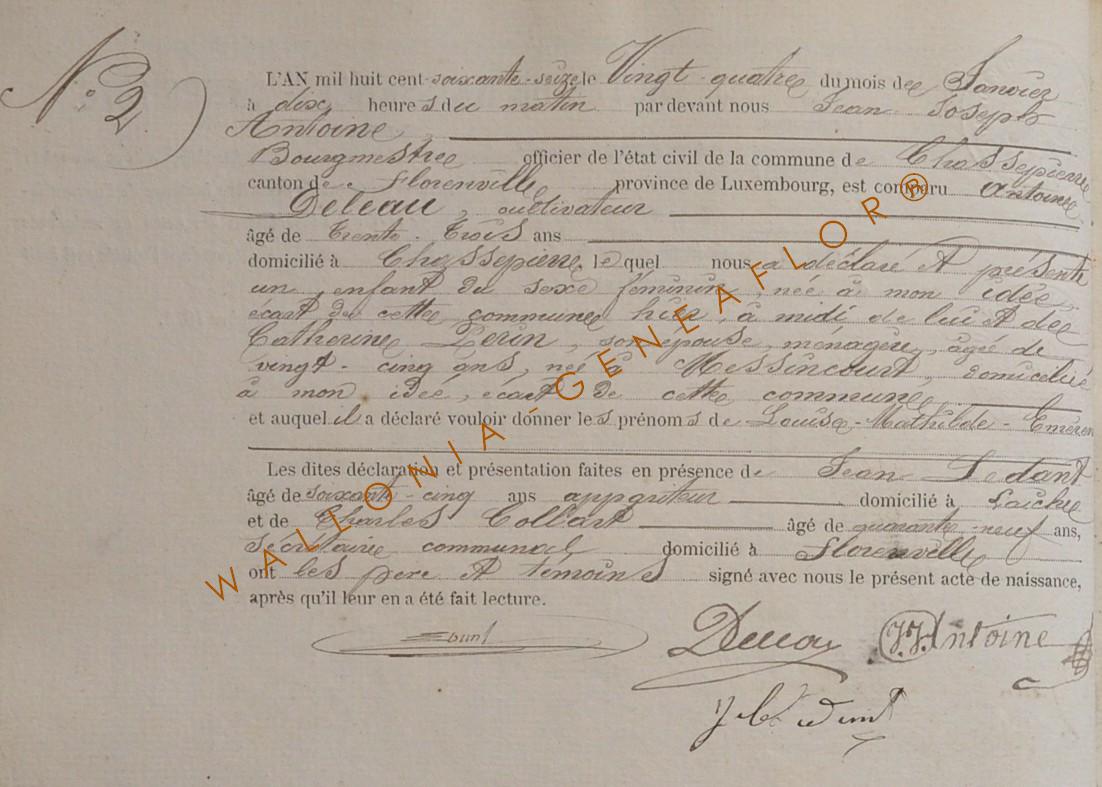 N° 2
L'AN mil huit cent soixante-seize le Vingt-quatre du mois de Janvier
à dix heures du matin par devant nous Jean Joseph
Antoine,
Bourgmestre officier de l'état civil de la commune de Chassepierre
canton de Florenville province de Luxembourg, est comparu Antoine
Deleau, cultivateur
âgé de trente-trois ans
domicilié à Chassepierre, lequel nous a déclaré et présenté
un enfant du sexe féminin, née à mon idée,
écart de cette commune hier, à midi de lui et de
Catherine Perin, son épouse, ménagère, âgée de
vingt-cinq ans, née à Messincourt, domiciliée
à mon idée, écart de cette commune,
et auquel il a déclaré vouloir donner les prénoms de Louise-Mathilde-Emeren
Les dites déclaration et présentation faites en présence de Jean
âgé de soixante-cinq ans appariteur domicilié à Laiche
et de Charles Collart âgé de quarante-neuf ans,
Secrétaire communal domicilié à Florenville
ont les père et témoins signé avec nous le présent acte de naissance,
après qu'il leur en a été fait lecture.
J.J. Antoine
WALLONIA-GENEAFLOR®